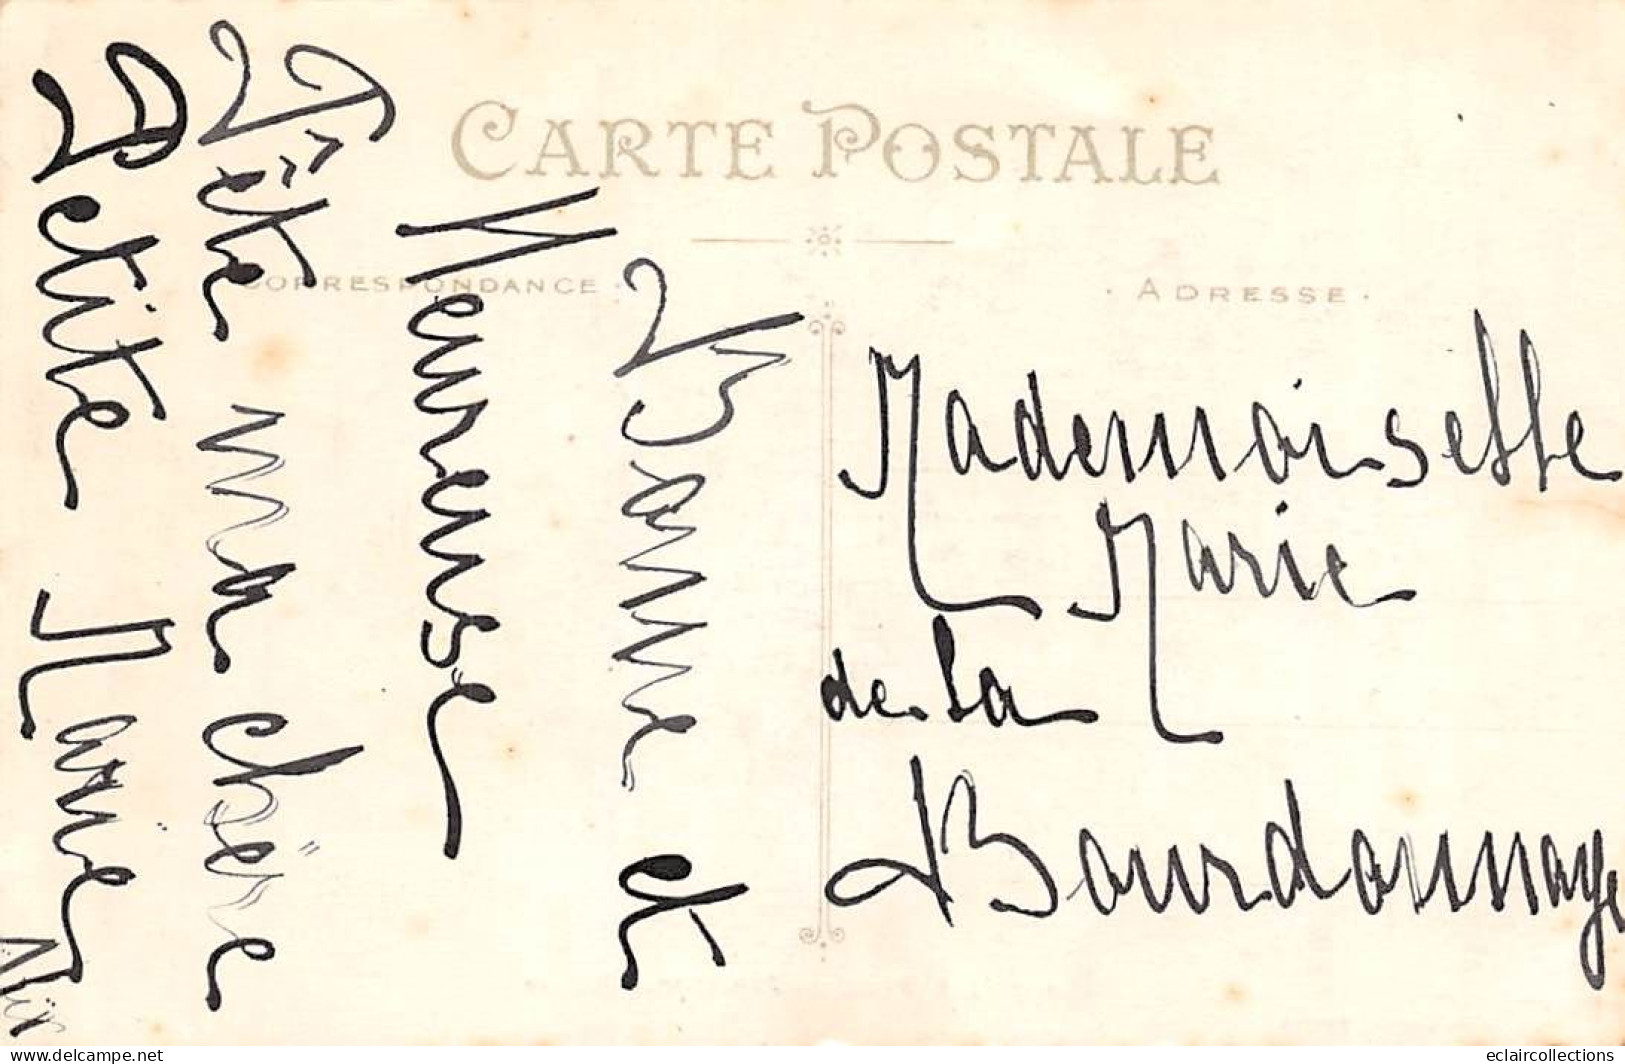 CARTE POSTALE
CORRESPONDANCE
ADRESSE
Bonne et
Heureuse
Fête ma chère
Petite Marie
Mademoiselle
Marie
de la
Bourdonnaye
delcampe.net
eclaircollections